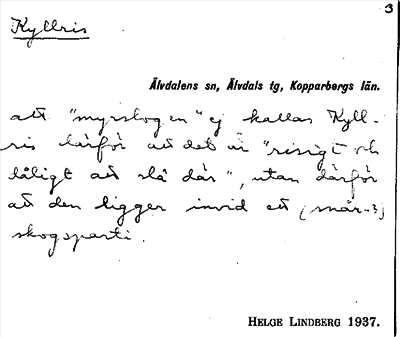 3
Kyllris
Älvdalens sn, Älvdals tg, Kopparbergs län.
att "myrslogen" ej kallas Kyll-
ris därför att det är "risigt och
dåligt att slå där", utan därför
att den ligger invid ett (snår-?)
skogsparti.
HELGE LINDBERG 1937.